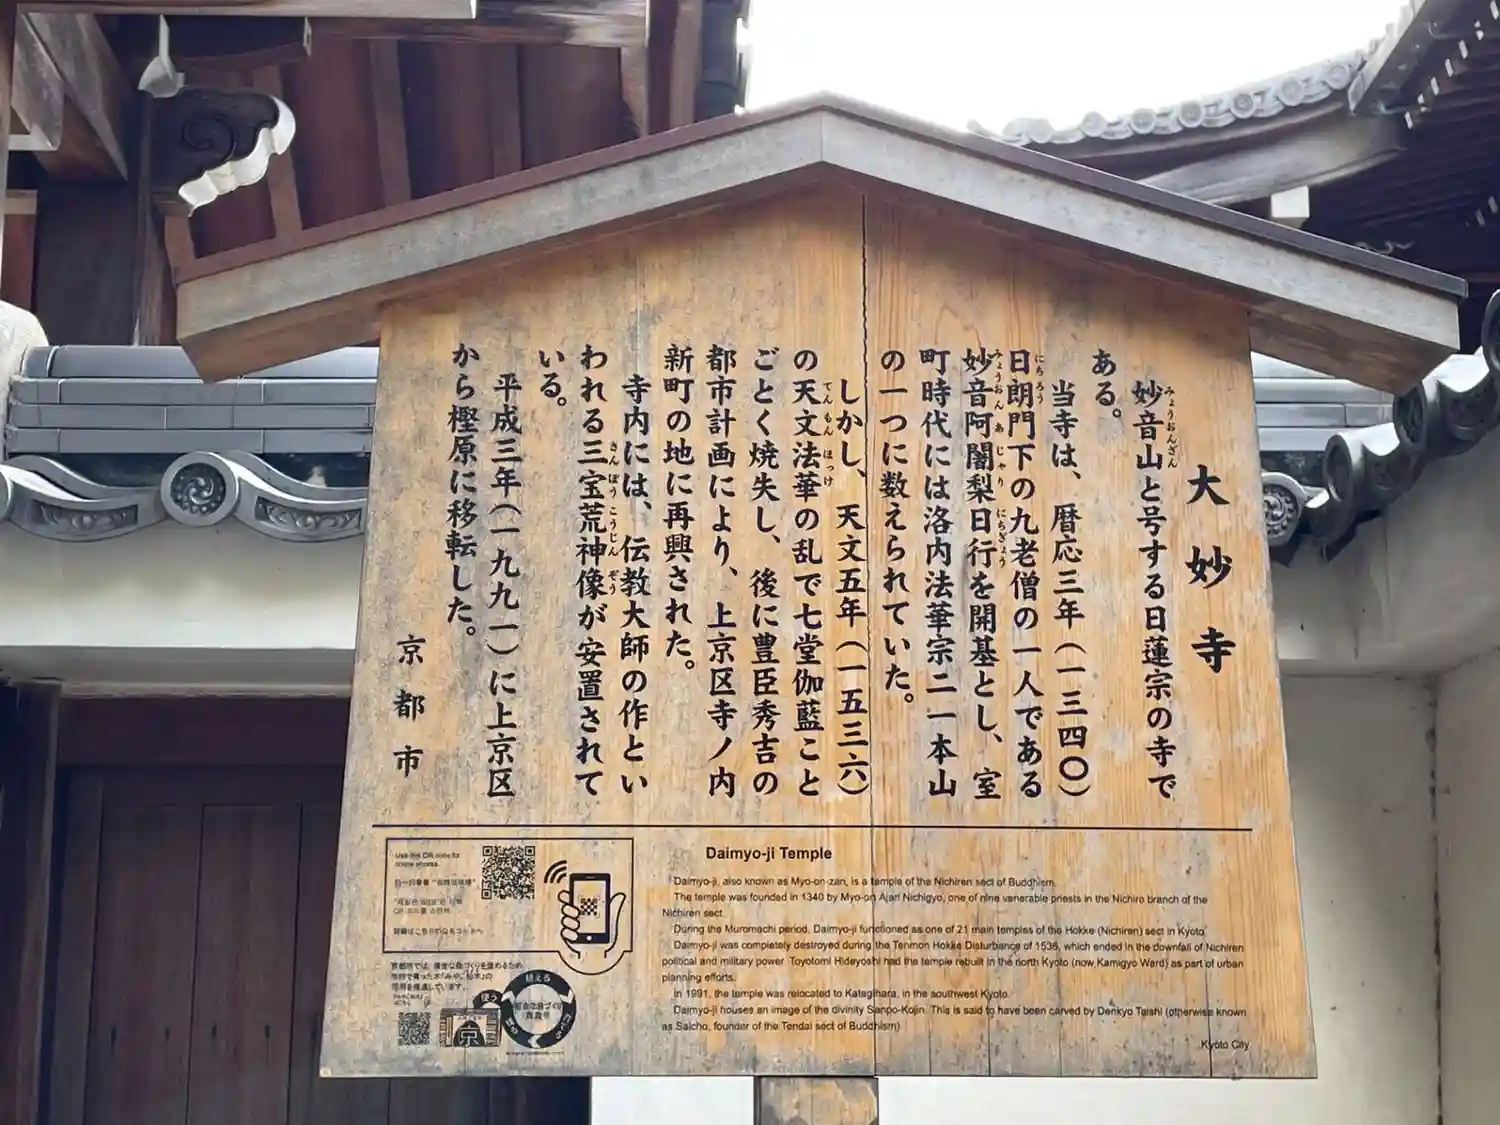 大妙寺
妙音山と号する日蓮宗の寺で
ある。
当寺は、暦応三年(一三四〇)
日朗門下の九老僧の一人である
妙音阿闍梨日行を開基とし、室
町時代には洛内法華宗二一本山
の一つに数えられていた。
しかし、天文五年(一五三六)
の天文法華の乱で七堂伽藍こと
ごとく焼失し、後に豊臣秀吉の
都市計画により、上京区寺ノ内
新町の地に再興された。
寺内には、伝教大師の作とい
われる三宝荒神像が安置されて
いる。
平成三年(一九九一)に上京区
から樫原に移転した。
京都市
みょうおんざん
にちろう
みょうおんあじゃり にちぎょう
てんもんほっけ
さんぽうこうじんぞう
Daimyo-ji Temple
Daimyo-ji, also known as Myo-on-zan, is a temple of the Nichiren sect of Buddhism.
The temple was founded in 1340 by Myo-on Ajari Nichigyo, one of nine venerable priests in the Nichiro branch of the
Nichiren sect.
During the Muromachi period, Daimyo-ji functioned as one of 21 main temples of the Hokke (Nichiren) sect in Kyoto.
Daimyo-ji was completely destroyed during the Tenmon Hokke Disturbance of 1536, which ended in the downfall of Nichiren
political and military power. Toyotomi Hideyoshi had the temple rebuilt in the north Kyoto (now Kamigyo Ward) as part of urban
planning efforts.
In 1991, the temple was relocated to Katagihara, in the southwest Kyoto.
Daimyo-ji houses an image of the divinity Sanpo-Kojin. This is said to have been carved by Denkyo Taishi (otherwise known
as Saicho, founder of the Tendai sect of Buddhism)
Kyoto City
Use this QR code for
online access.
詳細はこちらのQRコードへ
使う
植える
京